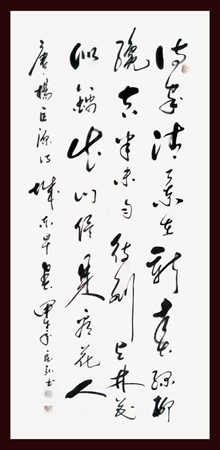 诗家清景在新春绿柳
纔黄半未匀待到上林花
似锦出门俱是看花人
唐杨巨源诗城东早春甲午年书